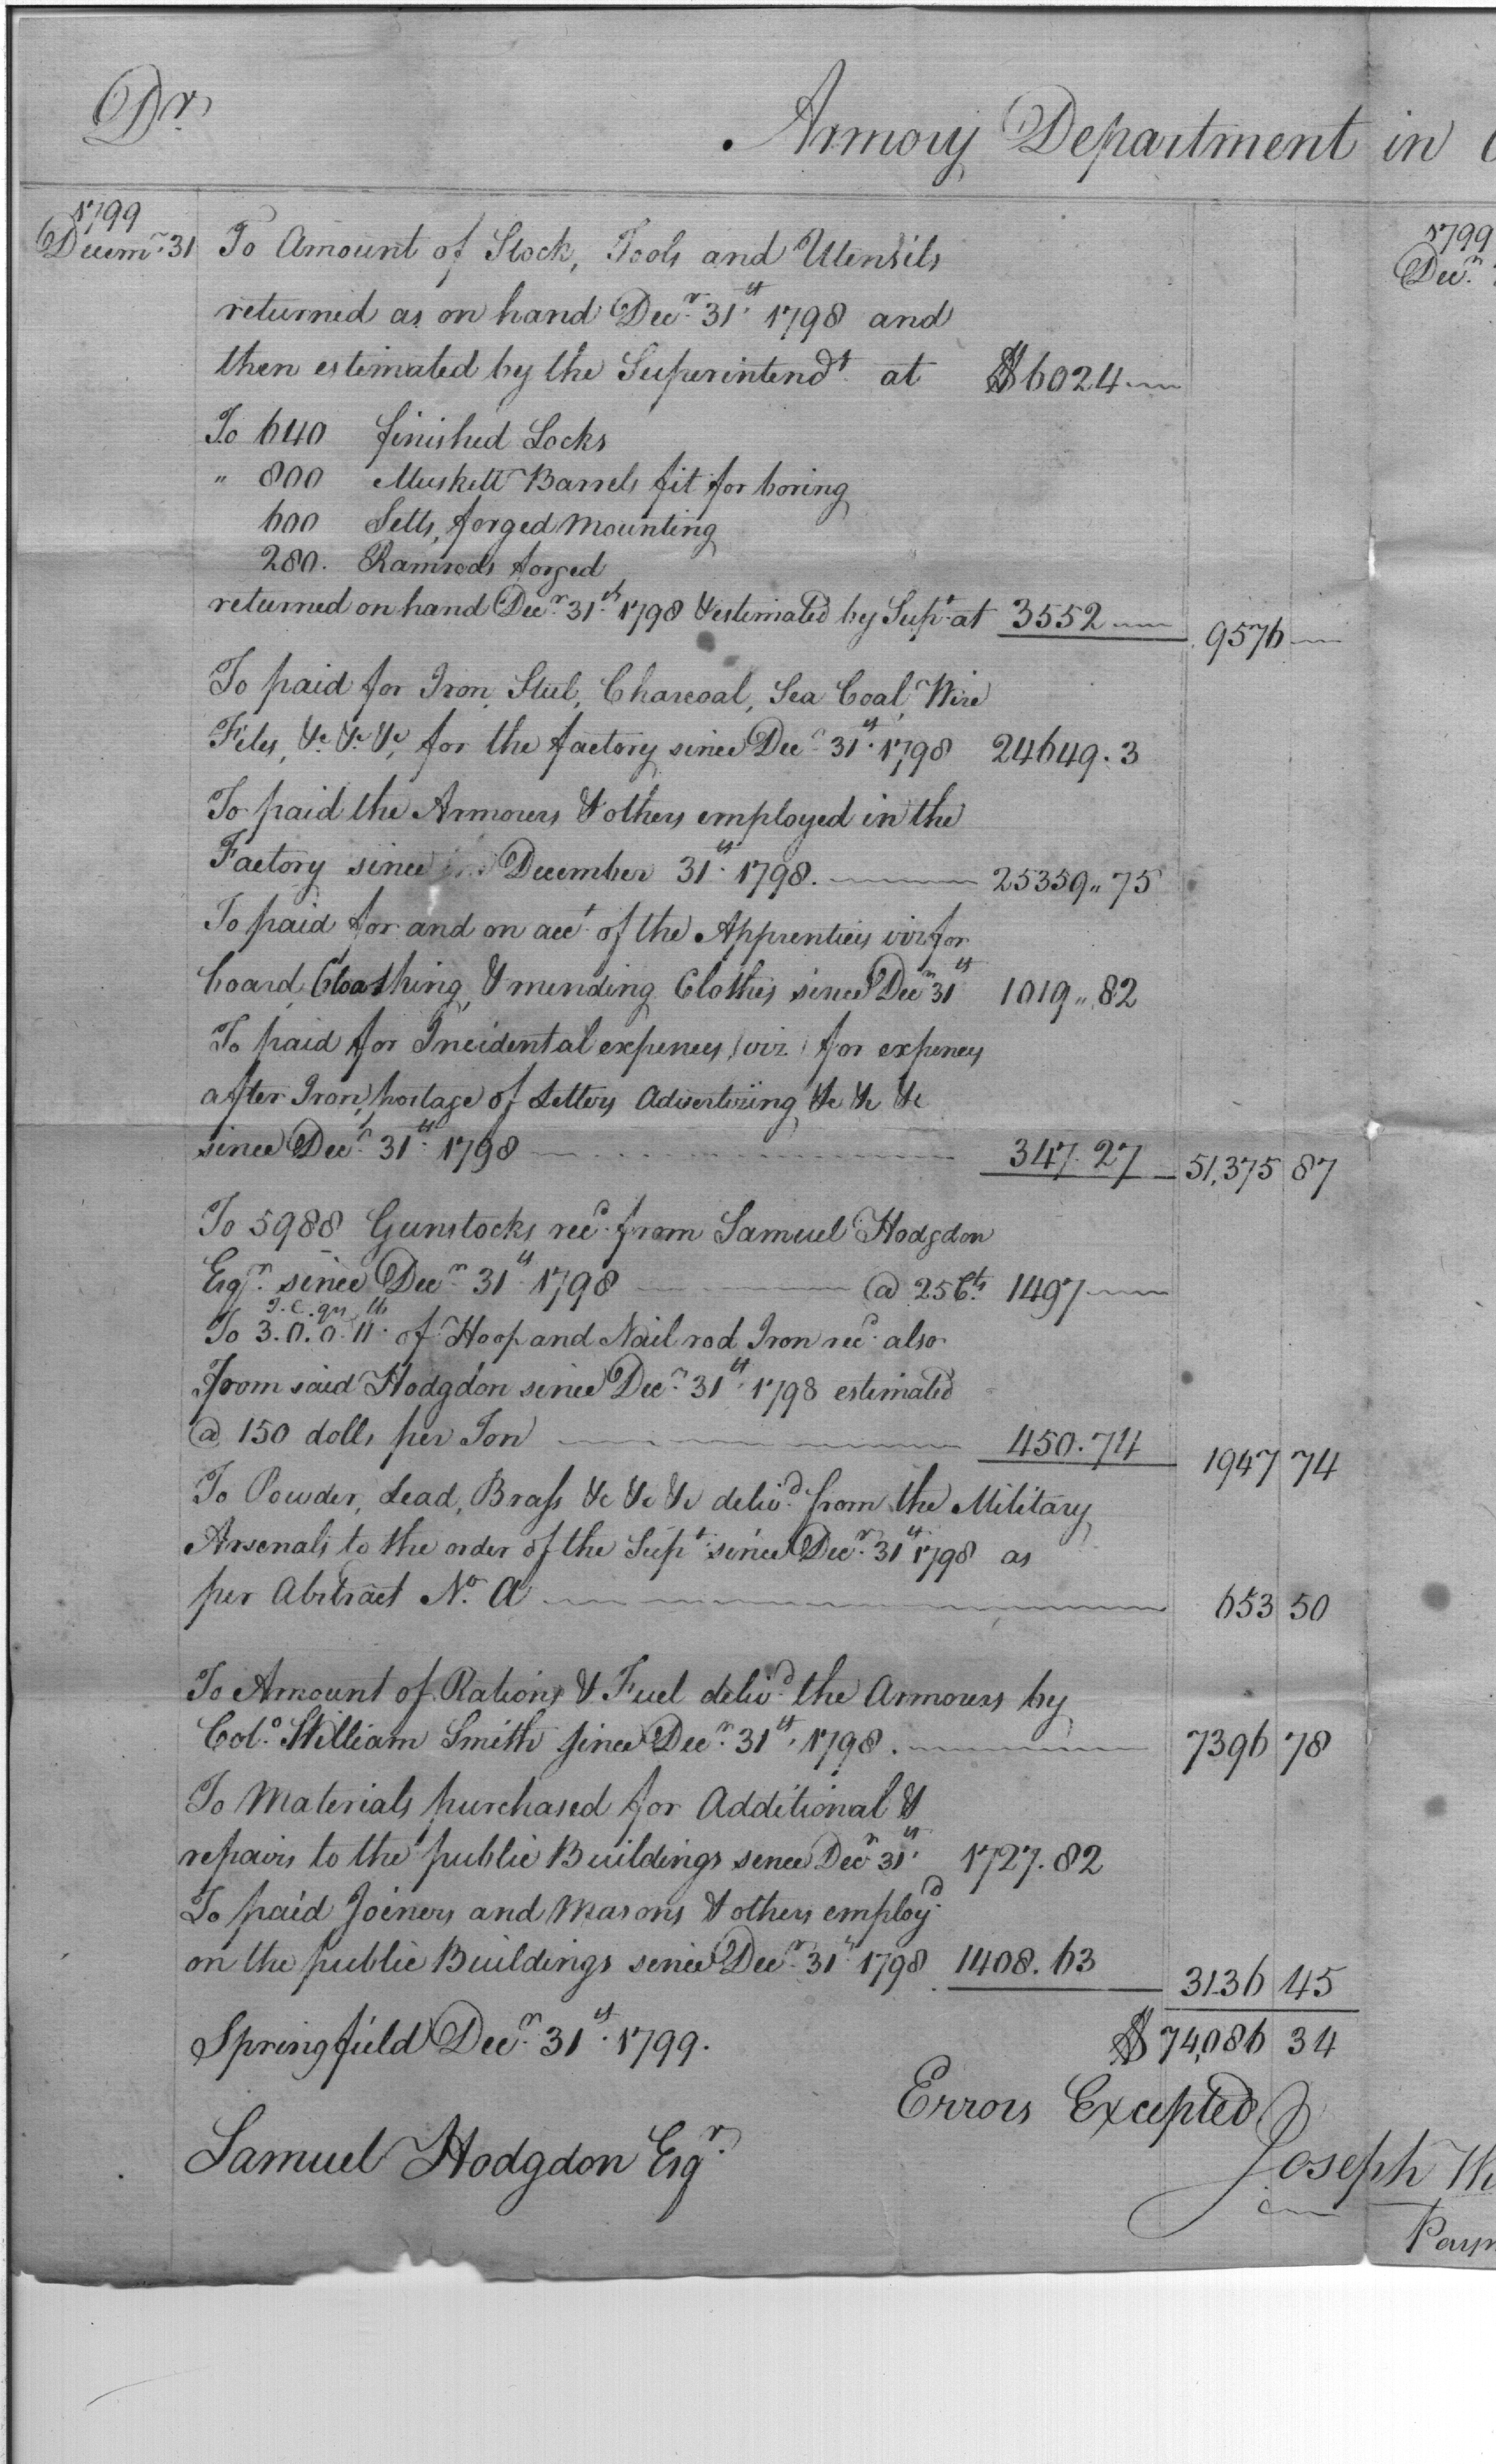 Dr.
Armory Department in
1799
Decemr. 31 To Amount of Stock, Tools and Utensils
returned as on hand Decr. 31st. 1798 and
then estimated by the Superintendt. at $6024.—
To 640 finished Locks
" 800 Muskett Barrels fit for boring
600 Setts, forged Mounting
280. Ramrods forged
returned on hand Decr. 31st. 1798 & estimated by Supt. at 3552 — 9576 —
To paid for Iron, Steel, Charcoal, Sea Coal, Wire
Files, &c. &c. &c, for the factory since Decr. 31st. 1798 24649. 3
To paid the Armorers & others employed in the
Factory since December 31st. 1798. — 25359„ 75
To paid for and on acct. of the Apprentices viz for
board, Cloathing, & mending Clothes since Decr. 31st 1019„ 82
To paid for Incidental expences, (viz) for expences
after Iron, postage of Letters Advertizing &c &c &c
since Decr. 31st. 1798 — 347. 27 — 51,375 87
To 5988 Gunstocks recd. from Samuel Hodgdon
Esqr. since Decr. 31st. 1798 — @ 25 Cts. 1497 —
T. C. qrs lb
To 3. 0. 0. 11. of Hoop and Nail rod Iron recd. also
from said Hodgdon since Decr. 31st. 1798 estimated
@ 150 dolls per Ton — 450. 74 1947 74
To Powder, Lead, Brass &c &c &c delivd. from the Military
Arsenals to the order of the Supt. since Decr. 31st 1798 as
per Abstract No. A — 653 50
To Amount of Rations & Fuel delivd. the Armorers by
Colo. William Smith since Decr. 31st. 1798. — 7396 78
To Materials purchased for Additional &
repairs to the public Buildings sence Decr 31st. 1727. 82
To paid Joiners and Masons & others employd.
on the public Buildings sence Decr. 31st 1798 1408. 63 3136 45
Springfield Decr. 31st. 1799. $ 74,086 34
Errors Excepted
Samuel Hodgdon Esqr.
Joseph
1799
Decr.